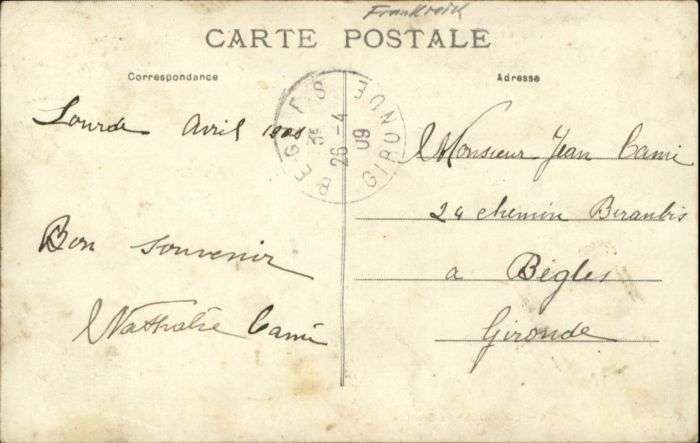 Frankreich
CARTE POSTALE
Correspondance
Adresse
BEGLES
GIRONDE
26 - 4
09
Lourde Avril
Bon souvenir
Nathalie Cami
Monsieur Jean Cami
24 chemin
à Bègles
Gironde